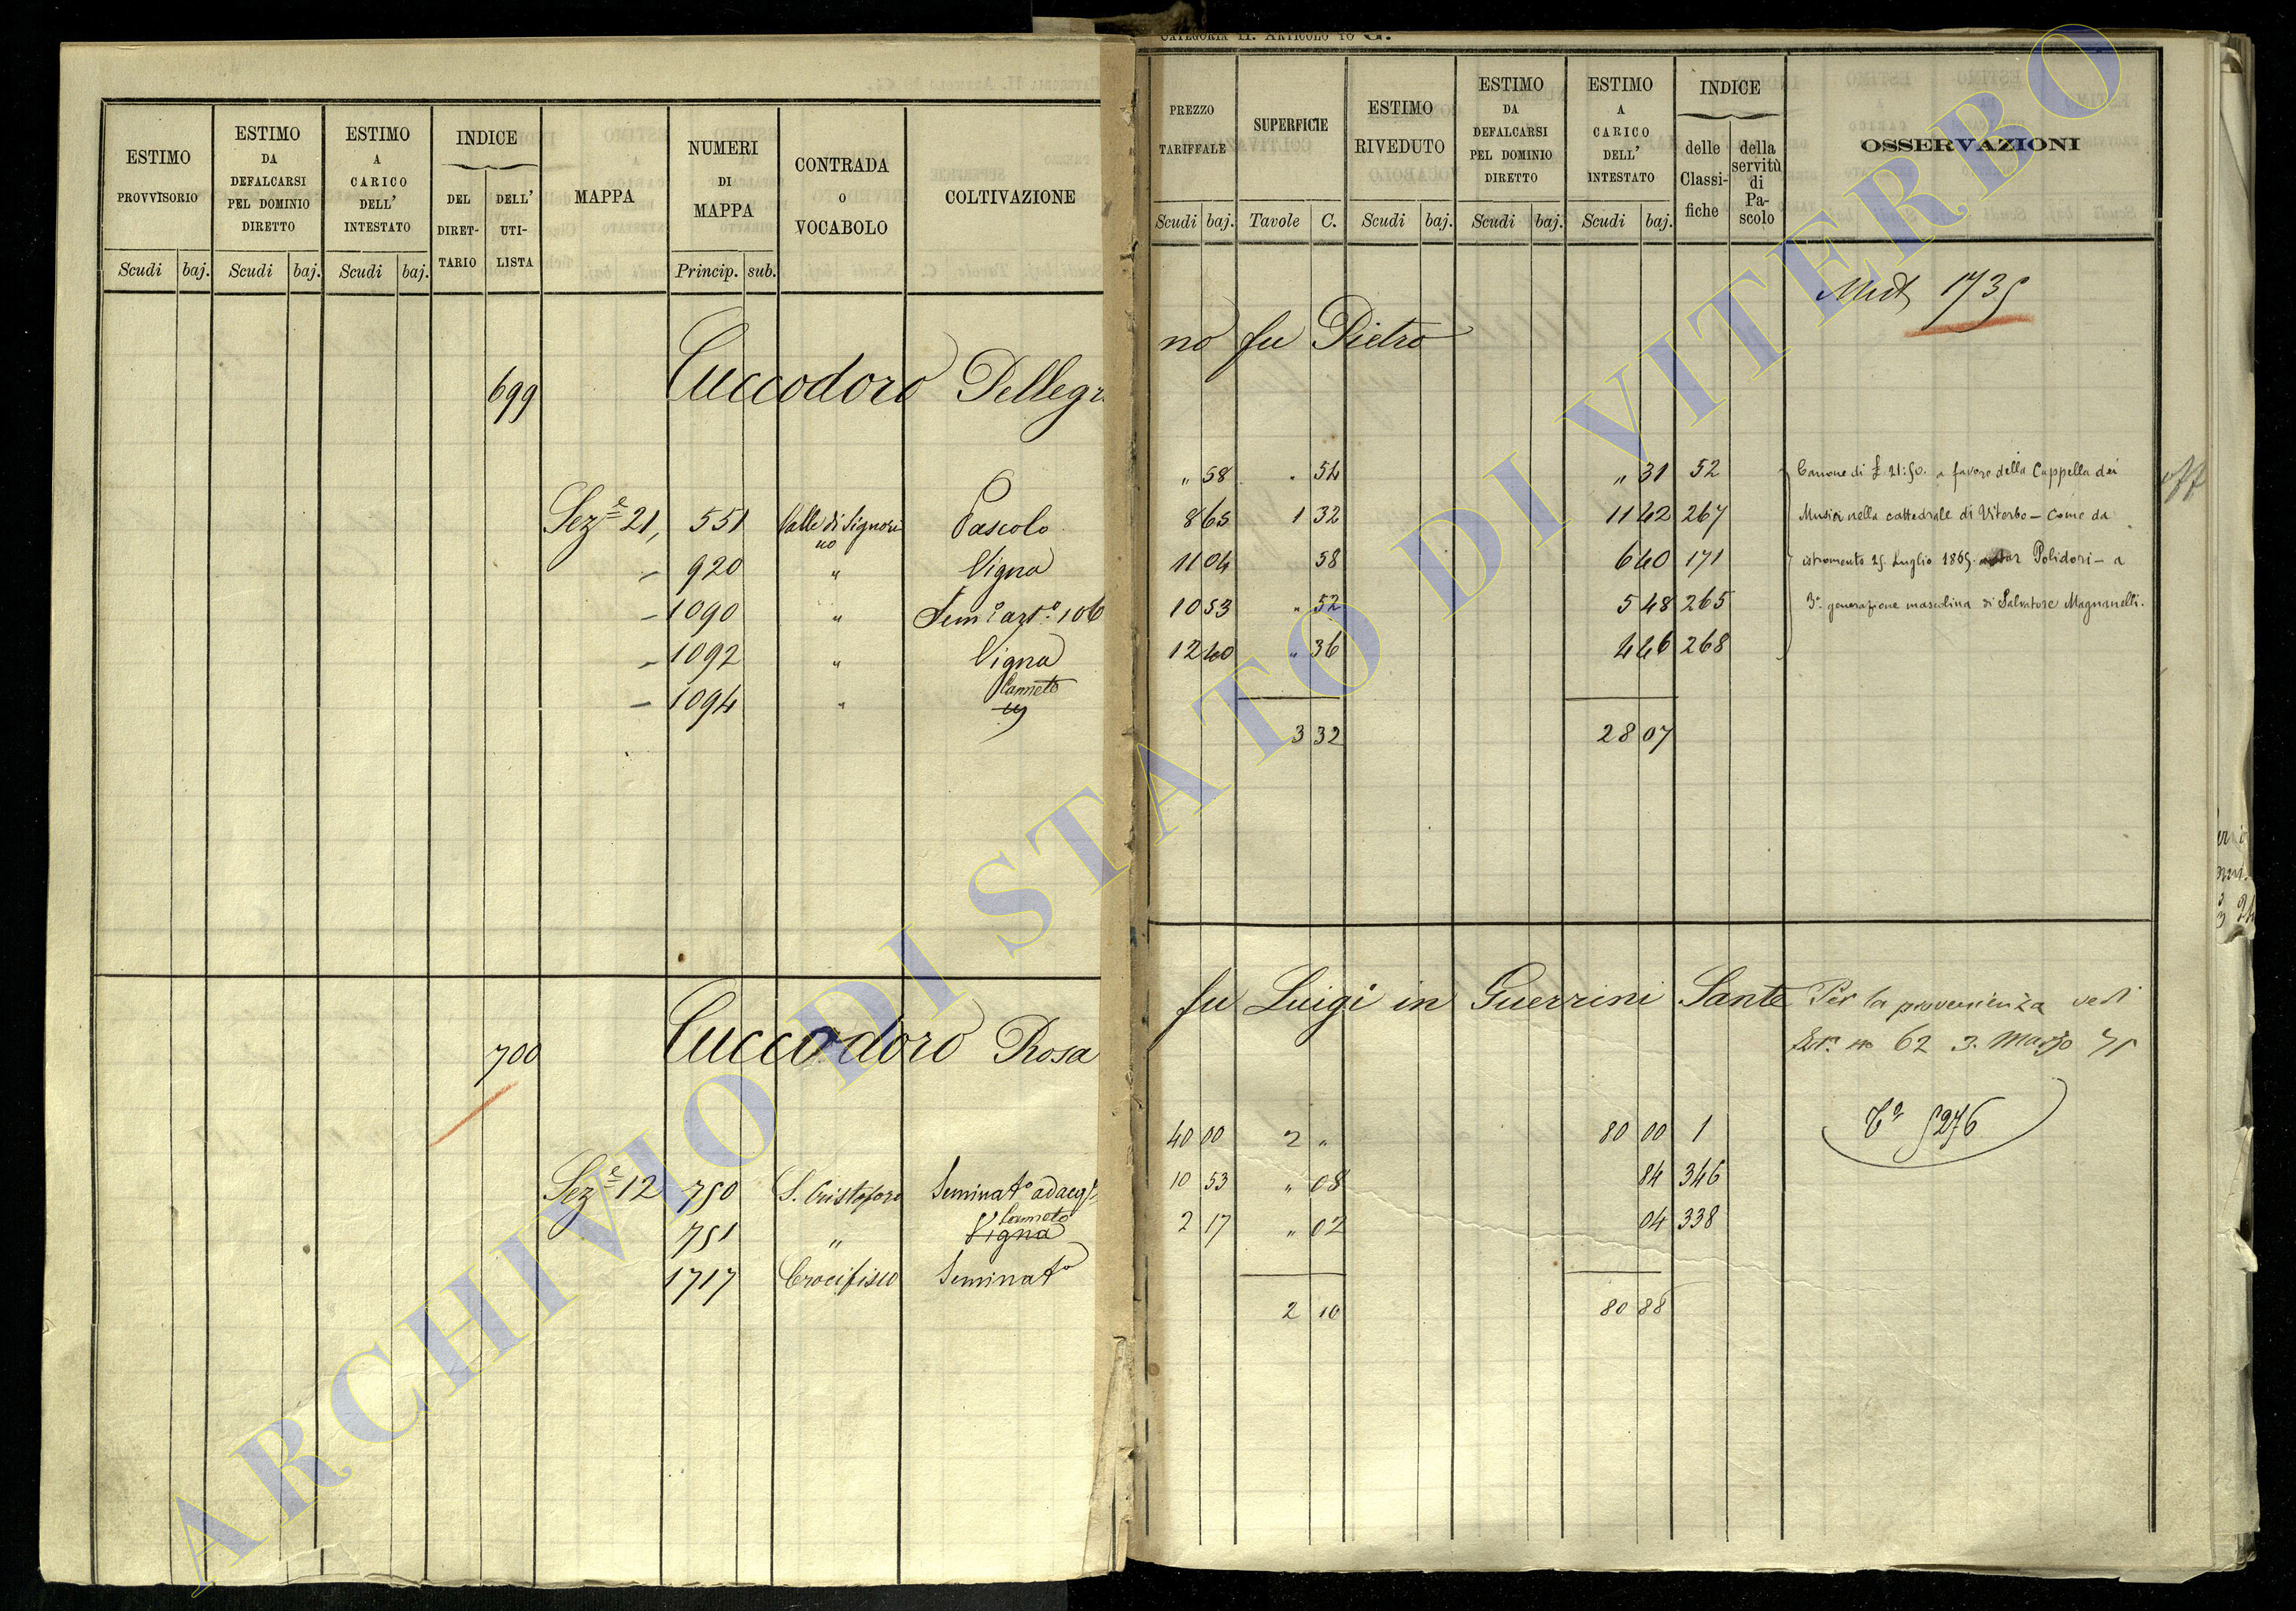 CATEGORIA II. ARTICOLO 10 G.
ESTIMO PROVVISORIO Scudi baj.
ESTIMO DA DEFALCARSI PEL DOMINIO DIRETTO Scudi baj.
ESTIMO A CARICO DELL' INTESTATO Scudi baj.
INDICE DEL DIRETTARIO DELL' UTILISTA
MAPPA
NUMERI DI MAPPA Princip. sub.
CONTRADA O VOCABOLO
COLTIVAZIONE
PREZZO TARIFFALE Scudi baj.
SUPERFICIE Tavole C.
ESTIMO RIVEDUTO Scudi baj.
ESTIMO DA DEFALCARSI PEL DOMINIO DIRETTO Scudi baj.
ESTIMO A CARICO DELL' INTESTATO Scudi baj.
INDICE delle Classifiche della servitù di Pascolo
OSSERVAZIONI
1735
699 Cuccodoro Pellegrino fu Pietro
Sez.e 21, 551 Valle di Signorino Pascolo " 58 " 54 " 31 52
– 920 " Vigna 8 65 1 32 11 42 267
– 1090 " Sem.o art.o 106 11 04 58 6 40 171
– 1092 " Vigna 10 53 " 52 5 48 265
– 1094 " Canneto 12 40 " 36 4 46 268
3 32 28 07
Canone di £ 21:50. a favore della Cappella dei
Musici nella cattedrale di Viterbo – come da
istromento 25 Luglio 1865. Polidori – a
3a generazione mascolina di Salvatore Magnanelli.
700 Cuccodoro Rosa fu Luigi in Guerrini Sante
Per la provenienza vedi
62 3. Marzo 71
5276
Sez.e 12 750 S. Cristoforo Seminat.o adacq. 40 00 2 " 80 00 1
751 " Canneto Vigna 10 53 " 08 84 346
1717 Crocifisso Seminat.o 2 17 " 02 04 338
2 10 80 88
ARCHIVIO DI STATO DI VITERBO